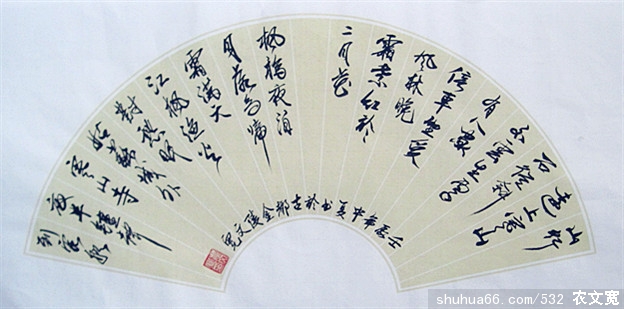 山行
远上寒山
石径斜
白云生处
有人家
停车坐爱
枫林晚
霜叶红於
二月花
枫桥夜泊
月落乌啼
霜满天
江枫渔火
对愁眠
姑苏城外
寒山寺
夜半钟声
到客船
壬辰年中夏书於古都金陵文宽
shuhua66.com/532 农文宽